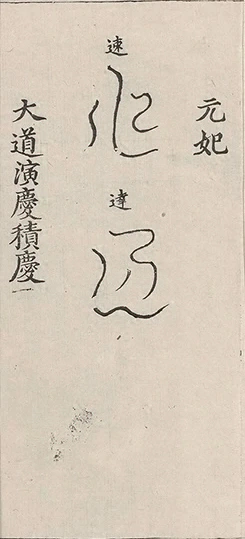 元妃
速
違
大道演慶積慶一